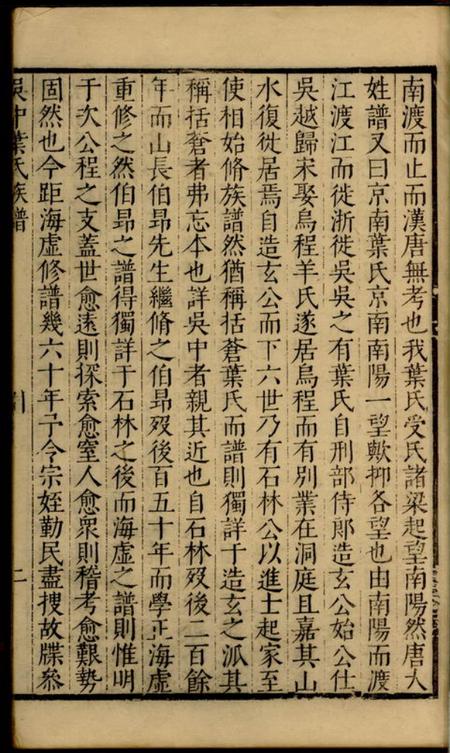 南渡而止而漢唐無考也我葉氏受氏諸梁起望南陽然唐人
姓譜又曰京南葉氏京南南陽一望歟抑各望也由南陽而渡
江渡江而徙浙徙吳吳之有葉氏自刑部侍郎造玄公始公仕
吳越歸宋娶烏程羊氏遂居烏程而有別業在洞庭且嘉其山
水復徙居焉自造玄公而下六世乃有石林公以進士起家至
使相始脩族譜然猶稱括蒼葉氏而譜則獨詳于造玄之派其
稱括蒼者弗忘本也詳吳中者親其近也自石林歿後二百餘
年而山長伯昻先生繼脩之伯昻歿後百五十年而學正海虛
重修之然伯昻之譜得獨詳于石林之後而海虛之譜則惟明
于次公程之支蓋世愈遠則探索愈窒人愈衆則稽考愈艱勢
固然也今距海虛修譜幾六十年予令宗姪勤民盡搜故牒叅
吳中葉氏族譜
二